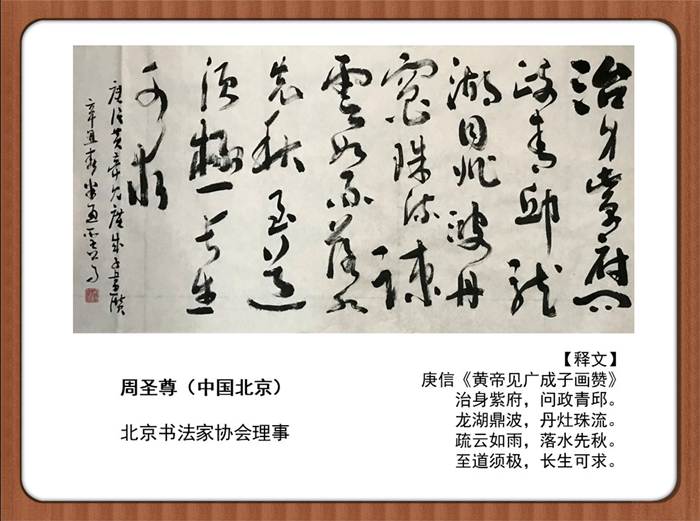 治身紫府問
政青邱龍
湖鼎波丹
竈珠流疎
雲如雨落水
先秋至道
須極一長生
可求
庾信黄帝見廣成子畫讚
【释文】
庾信《黄帝见广成子画赞》
治身紫府，问政青邱。
龙湖鼎波，丹灶珠流。
疏云如雨，落水先秋。
至道须极，长生可求。
周圣尊（中国北京）
北京书法家协会理事